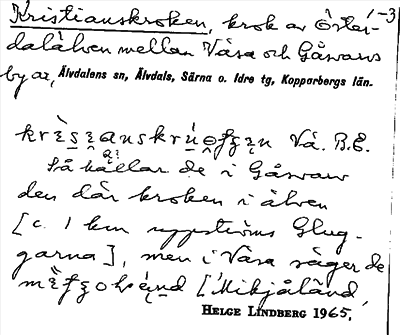 Kristianskroken, krok av Öster- 1-3
dalälven mellan Våsa och Gåsvarv
byar, Älvdalens sn, Älvdals, Särna o. Idre tg, Kopparbergs län.
Vå. B.E.
Så kallar de i Gåsvarv
den där kroken i älven
[c. 1 km uppströms Glug-
garna], men i Våsa säger de
['Mikjåländ'
HELGE LINDBERG 1965,